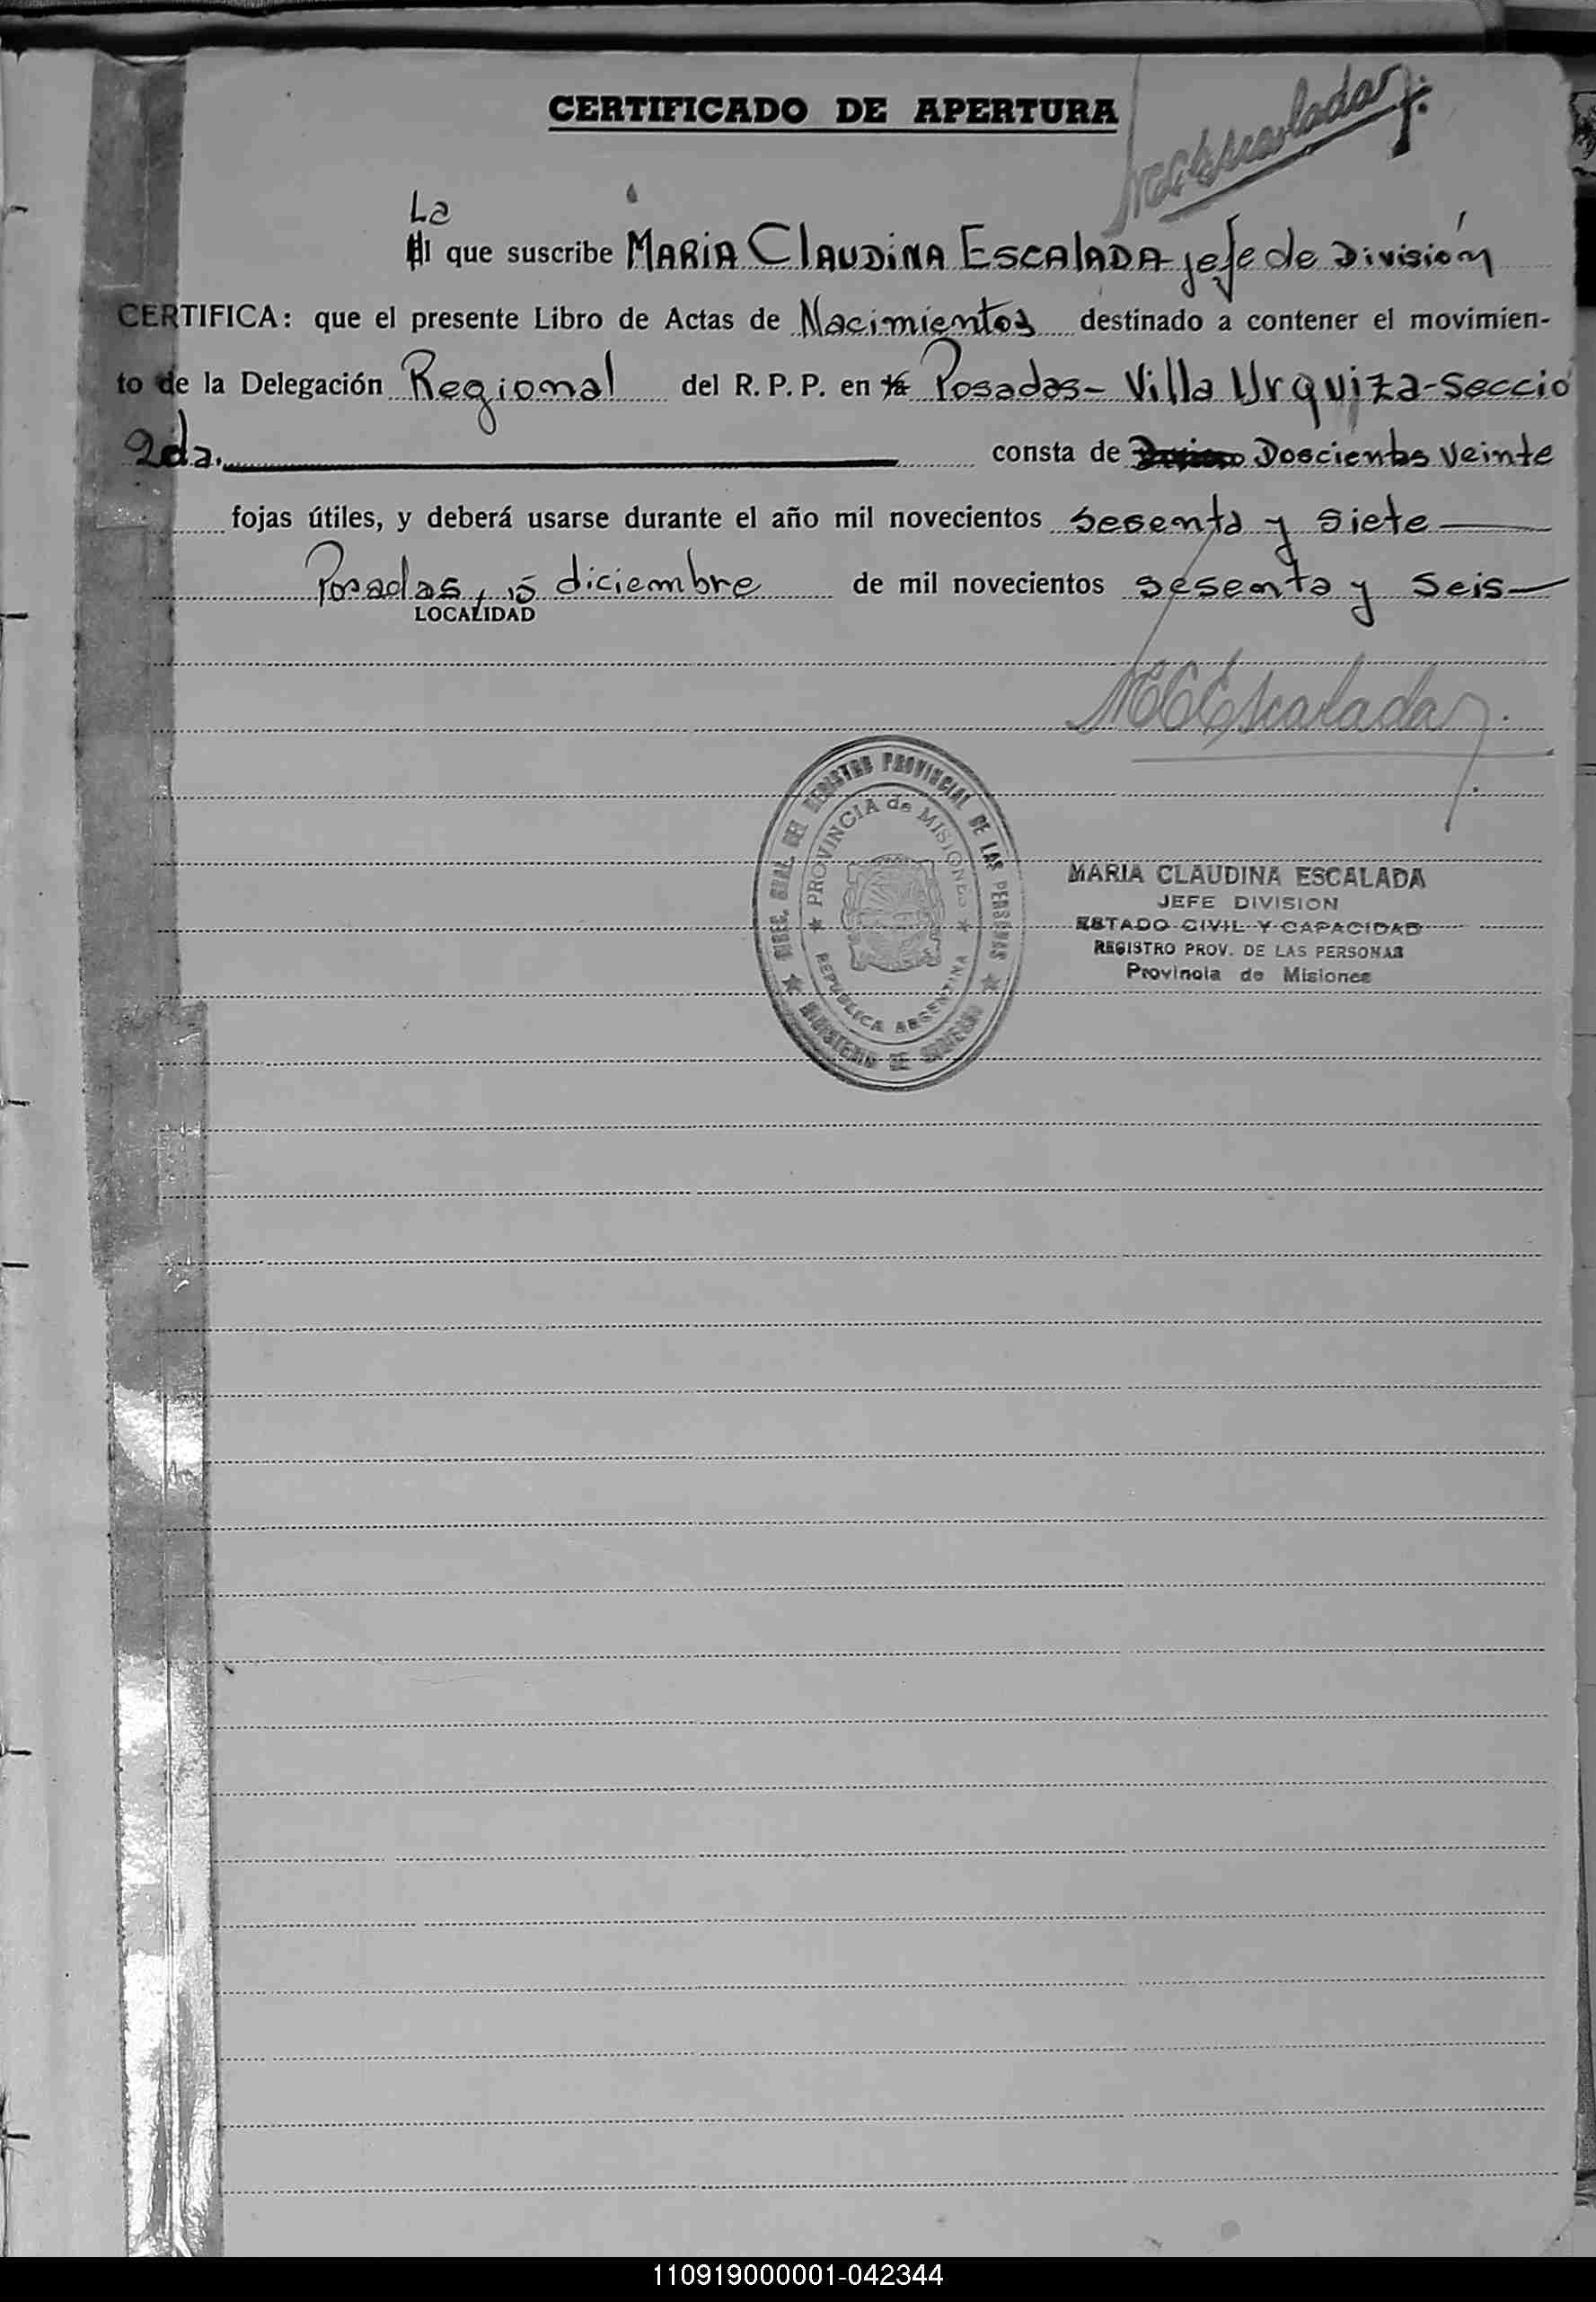 CERTIFICADO DE APERTURA
MCEscalada
La
El que suscribe MARIA CLAUDINA ESCALADA jefe de División
CERTIFICA: que el presente Libro de Actas de Nacimientos destinado a contener el movimien-
to de la Delegación Regional del R. P. P. en Posadas - Villa Urquiza - Seccio
2da. consta de Doscientos Veinte
fojas útiles, y deberá usarse durante el año mil novecientos sesenta y siete
Posadas, 15 diciembre de mil novecientos sesenta y seis
LOCALIDAD
MCEscalada
DIREC. GRAL. DEL REGISTRO PROVINCIAL DE LAS PERSONAS
PROVINCIA de MISIONES
REPUBLICA ARGENTINA
MINISTERIO DE GOBIERNO
MARIA CLAUDINA ESCALADA
JEFE DIVISION
ESTADO CIVIL Y CAPACIDAD
REGISTRO PROV. DE LAS PERSONAS
Provincia de Misiones
110919000001-042344